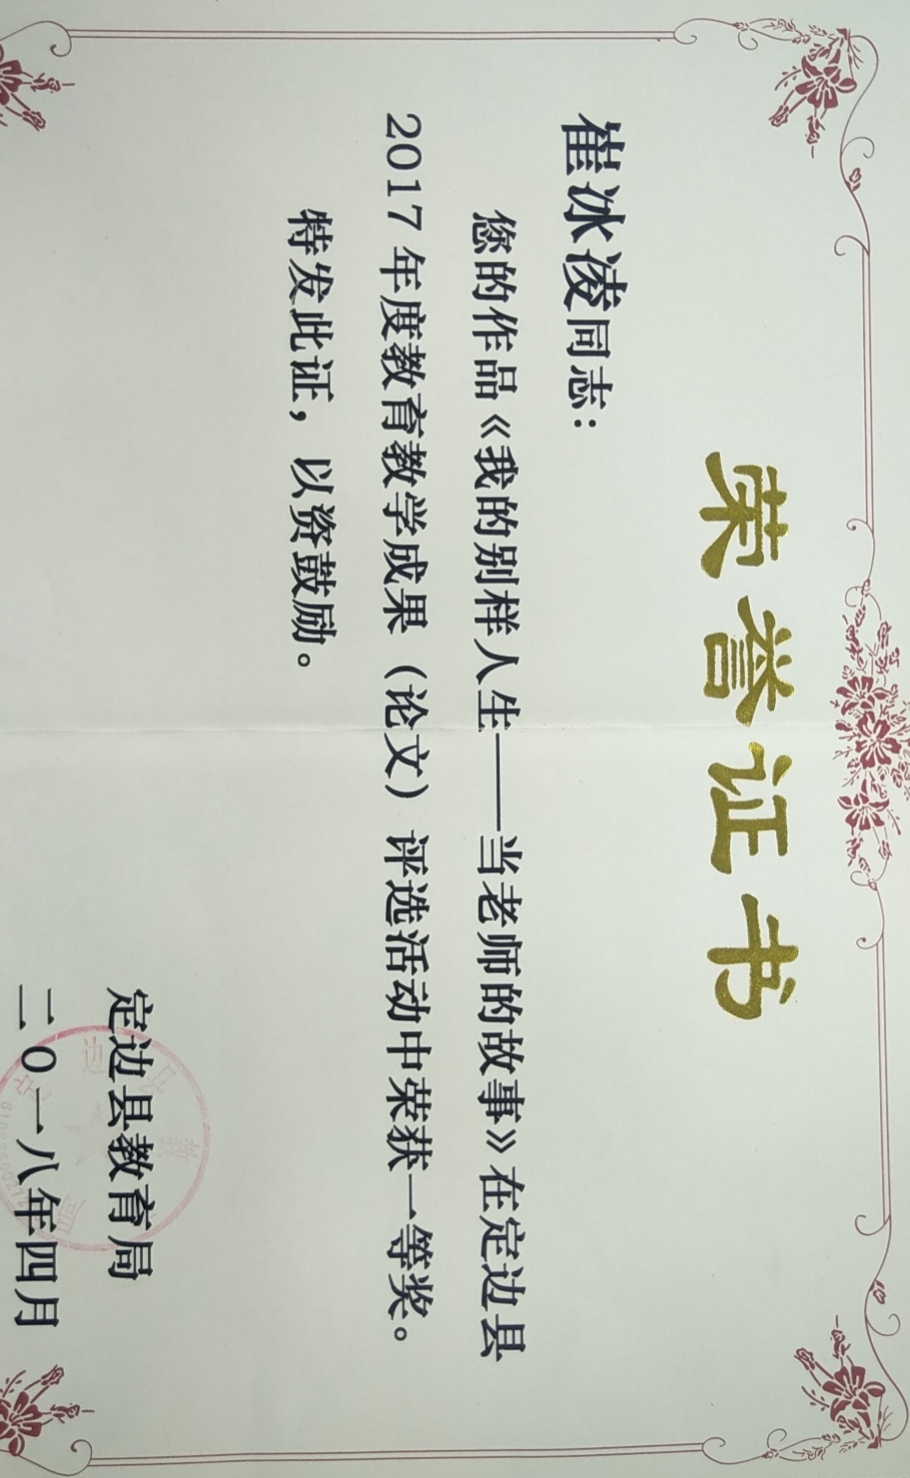 荣誉证书
崔冰凌同志：
您的作品《我的别样人生——当老师的故事》在定边县
2017年度教育教学成果（论文）评选活动中荣获一等奖。
特发此证，以资鼓励。
定边县教育局
二0一八年四月